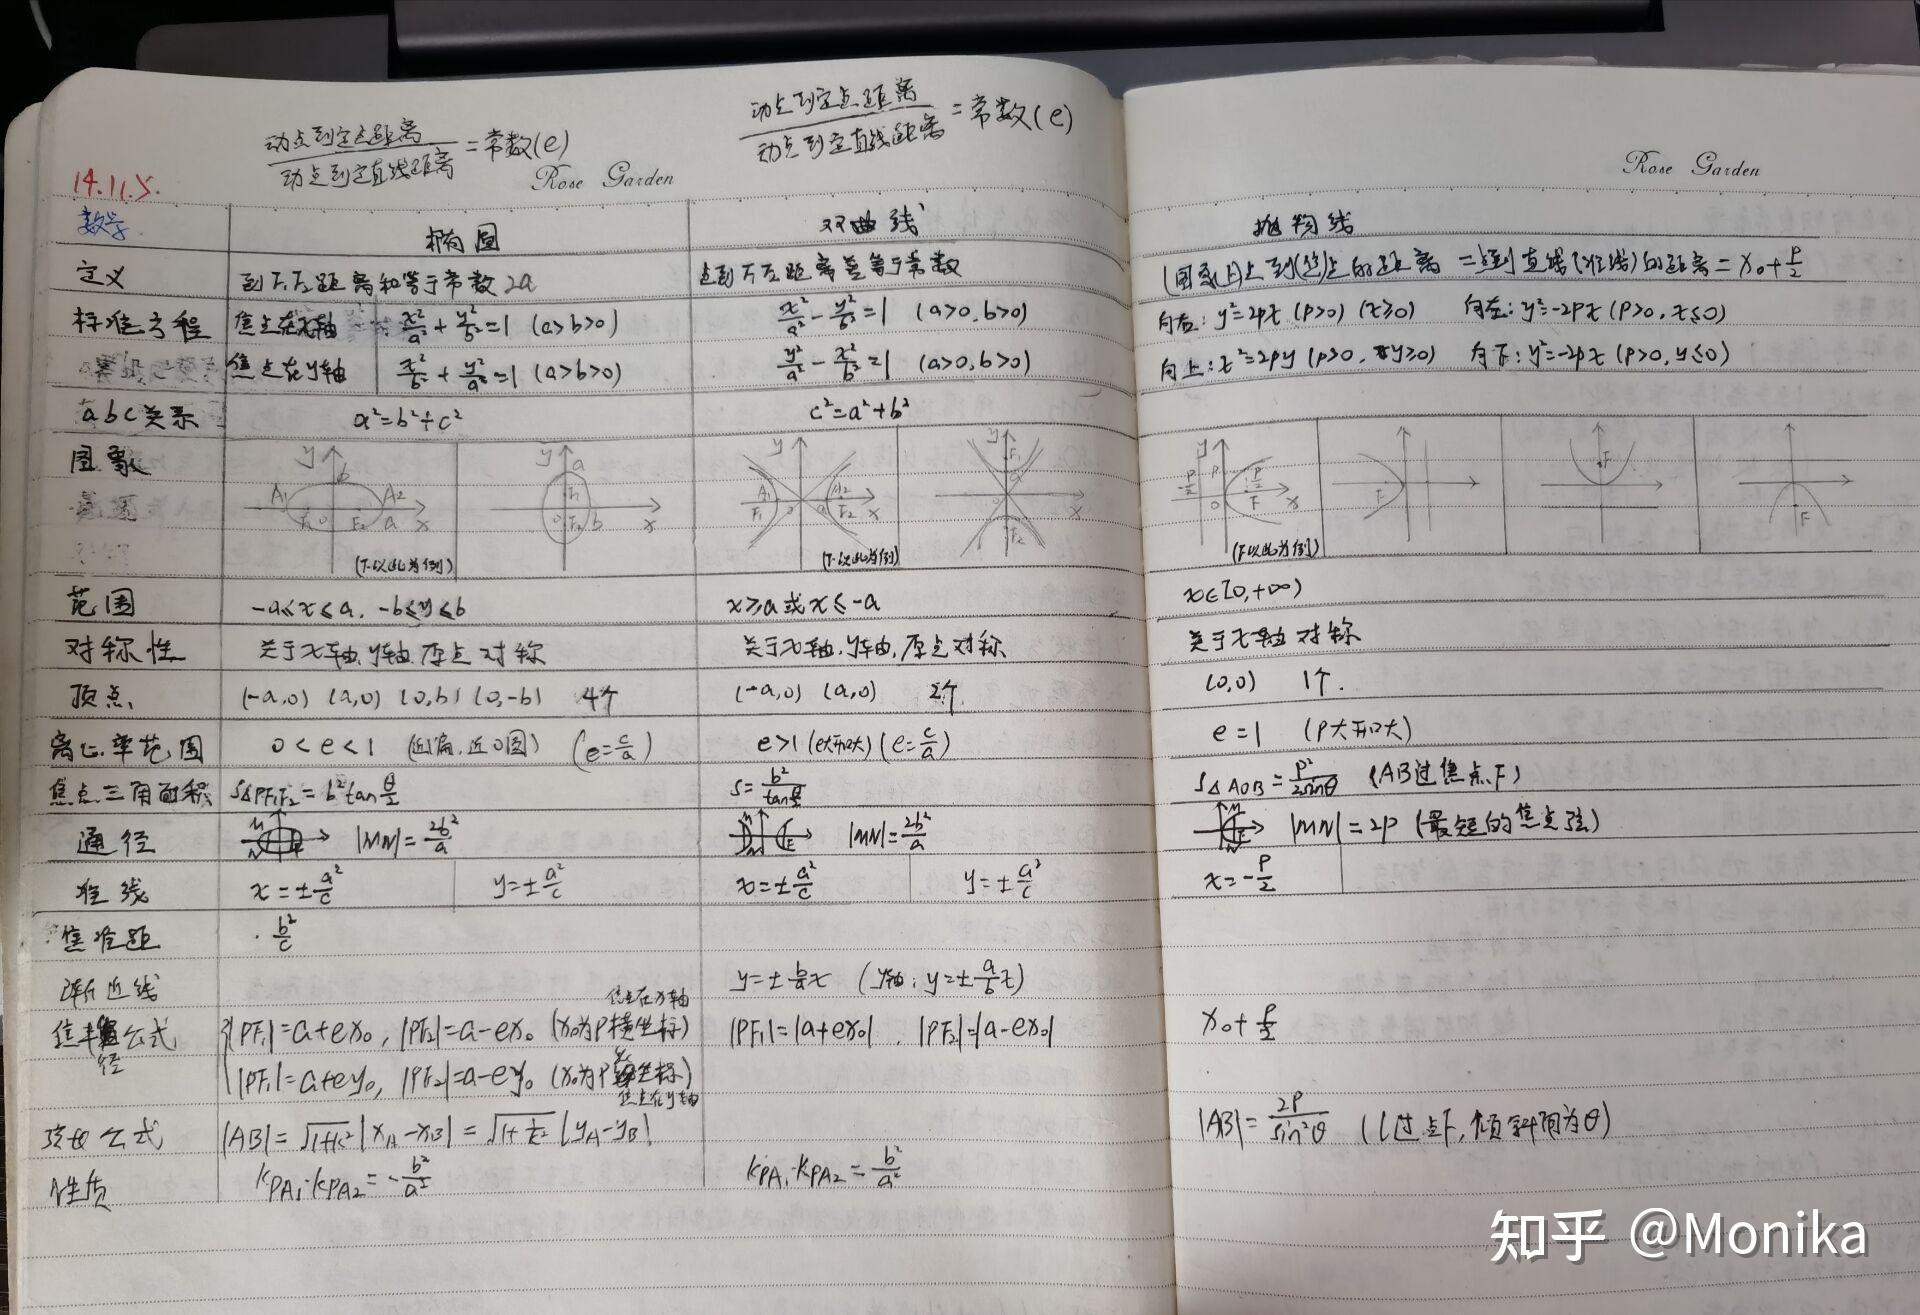 动点到定点距离 / 动点到定直线距离 = 常数(e)
动点到定点距离 / 动点到定直线距离 = 常数(e)
Rose Garden
Rose Garden
14.11.5.
数学 椭圆 双曲线 抛物线
定义 到F₁F₂距离和等于常数2a 点到F₁F₂距离差等于常数 (图象上)点到(焦)点的距离=点到直线(准线)的距离=x₀+p/2
标准方程 焦点在x轴 x²/a²+y²/b²=1 (a>b>0) x²/a²-y²/b²=1 (a>0,b>0) 向右: y²=2px (p>0) (x≥0) 向左: y²=-2px (p>0, x≤0)
焦点在y轴 x²/b²+y²/a²=1 (a>b>0) y²/a²-x²/b²=1 (a>0,b>0) 向上: x²=2py (p>0, y≥0) 向下: y²=-2px (p>0, y≤0)
abc关系 a²=b²+c² c²=a²+b²
图象
y b A₁ A₂ F₁ 0 F₂ a x (下以此为例)
y a F₁ 0 F₂ b x
y A₁ A₂ F₁ 0 a F₂ x (下以此为例)
y F₁ a 0 F₂ x
-p/2 y p/2 0 F x (下以此为例)
F
F
F
范围 -a≤x≤a, -b≤y≤b x≥a或x≤-a x∈[0,+∞)
对称性 关于x轴,y轴,原点对称 关于x轴,y轴,原点对称 关于x轴对称
顶点 (-a,0) (a,0) (0,b) (0,-b) 4个 (-a,0) (a,0) 2个 (0,0) 1个.
离心率范围 0<e<1 (近1扁,近0圆) (e=c/a) e>1 (e大开口大) (e=c/a) e=1 (p大开口大)
焦点三角面积 S△PF₁F₂=b²tanθ/2 S=b²/tanθ/2 S△AOB=p²/2sinθ (AB过焦点F)
通径 M N |MN|=2b²/a M N F |MN|=2b²/a M N F |MN|=2p (最短的焦点弦)
准线 x=±a²/c y=±a²/c x=±a²/c y=±a²/c x=-p/2
焦准距 b²/c
渐近线 y=±b/a x (y轴: y=±a/b x)
焦点在x轴
焦半径公式 |PF₁|=a+ex₀, |PF₂|=a-ex₀ (x₀为P横坐标) |PF₁|=|a+ex₀|, |PF₂|=|a-ex₀| x₀+p/2
|PF₁|=a+ey₀, |PF₂|=a-ey₀ (x₀为P坐标)
焦点在y轴
弦长公式 |AB|=√1+k² |xA-xB| = √1+1/k² |yA-yB| |AB|=2p/sin²θ (l过点F,倾斜角为θ)
性质 kPA₁·kPA₂=-b²/a² kPA₁·kPA₂=b²/a²
知乎 @Monika